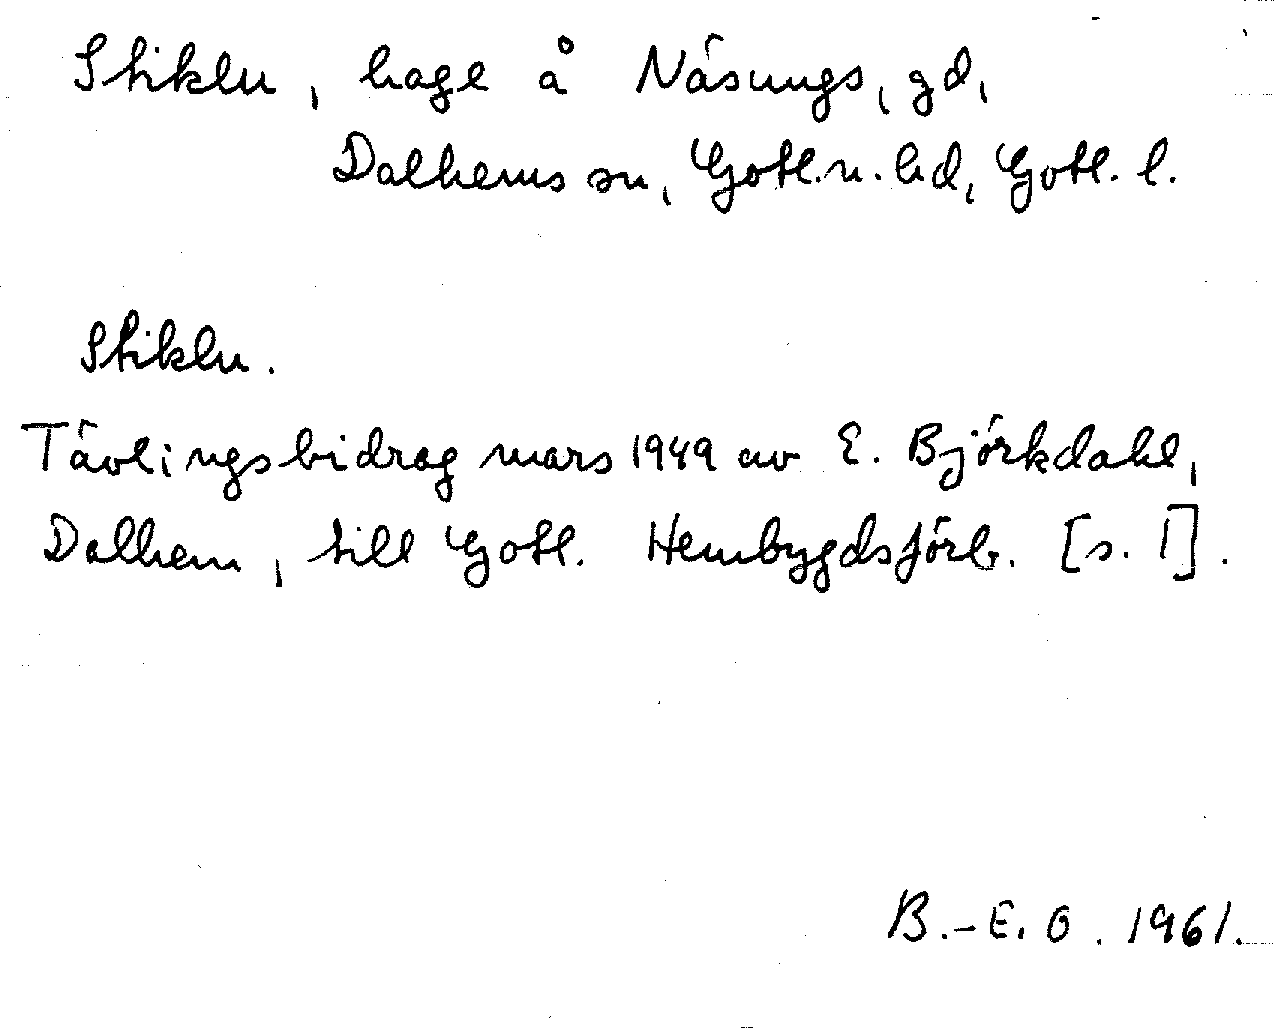 Stiklu, hage å Näsungs, gd,
Dalhems sn, Gotl. n. hd, Gotl. l.
Stiklu.
Tävlingsbidrag mars 1949 av E. Björkdahl,
Dalhem, till Gotl. Hembygdsförb. [s. 1].
B.-E. O. 1961.